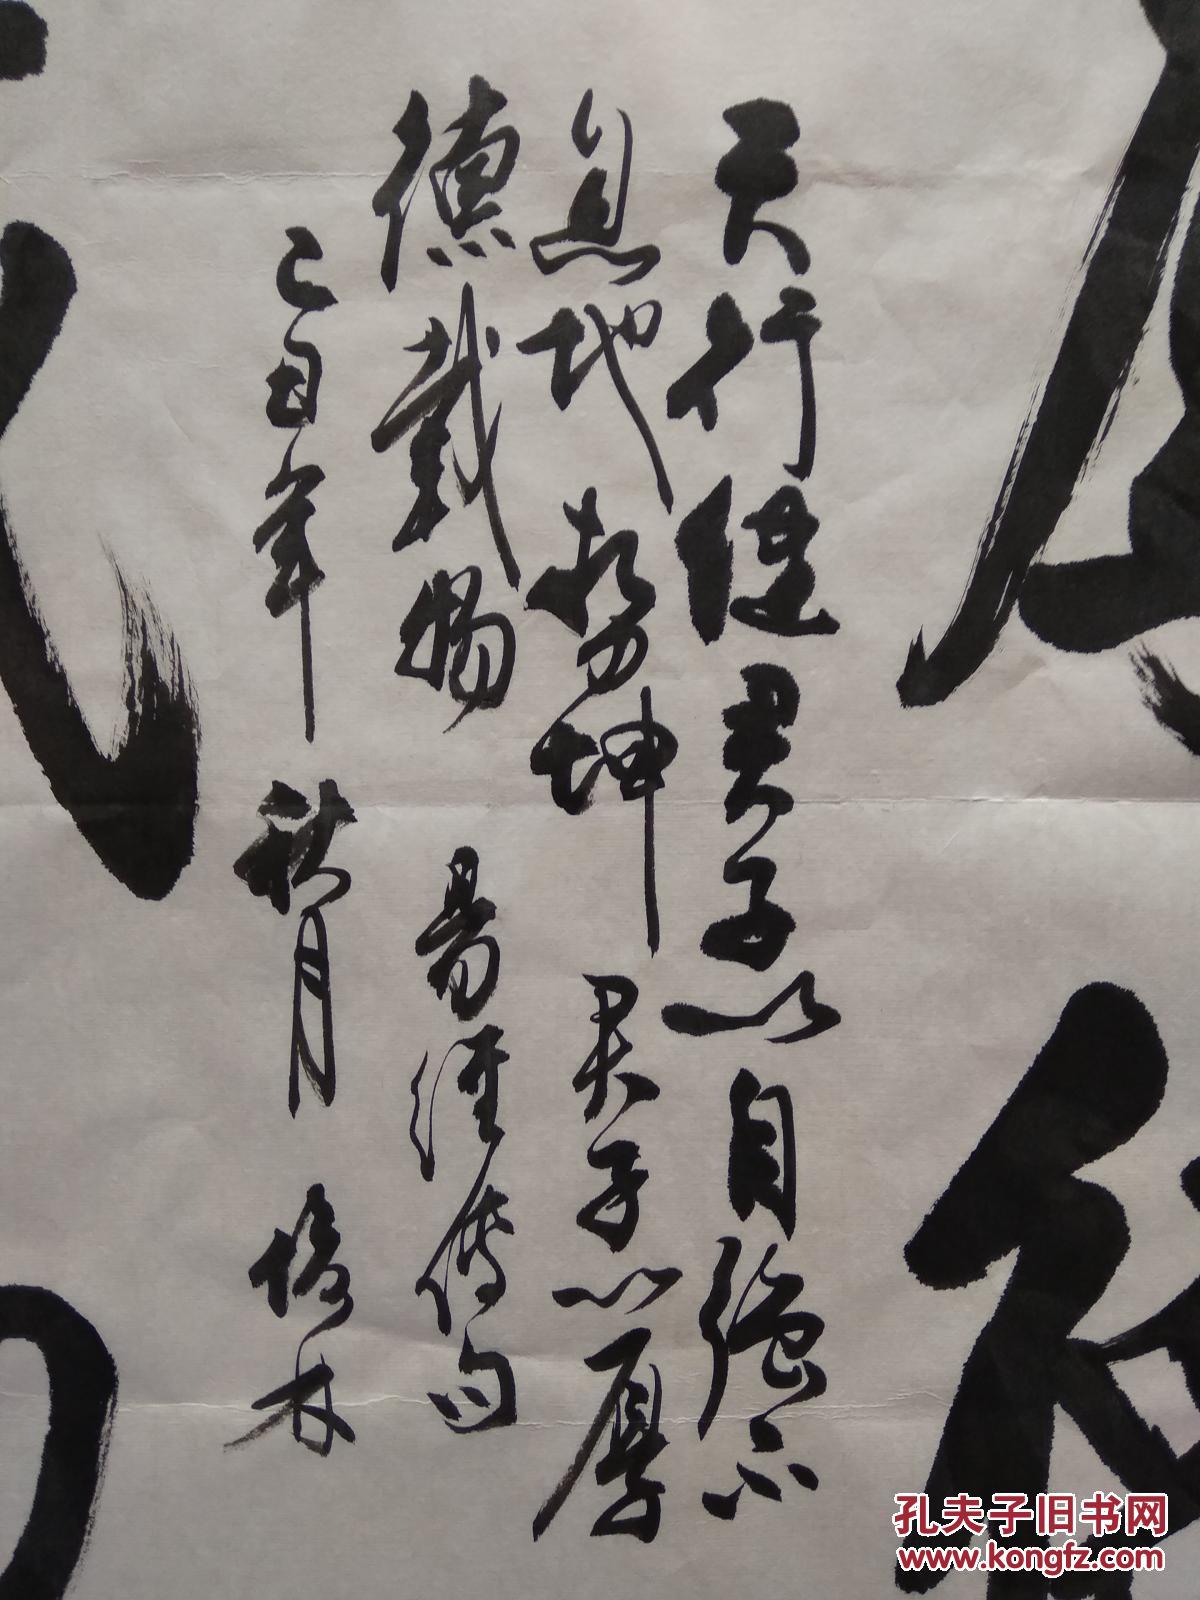 天行健君子以自強不
息地勢坤君子以厚
德載物 易經傳句
己丑年 秋月
孔夫子旧书网
www.kongfz.com